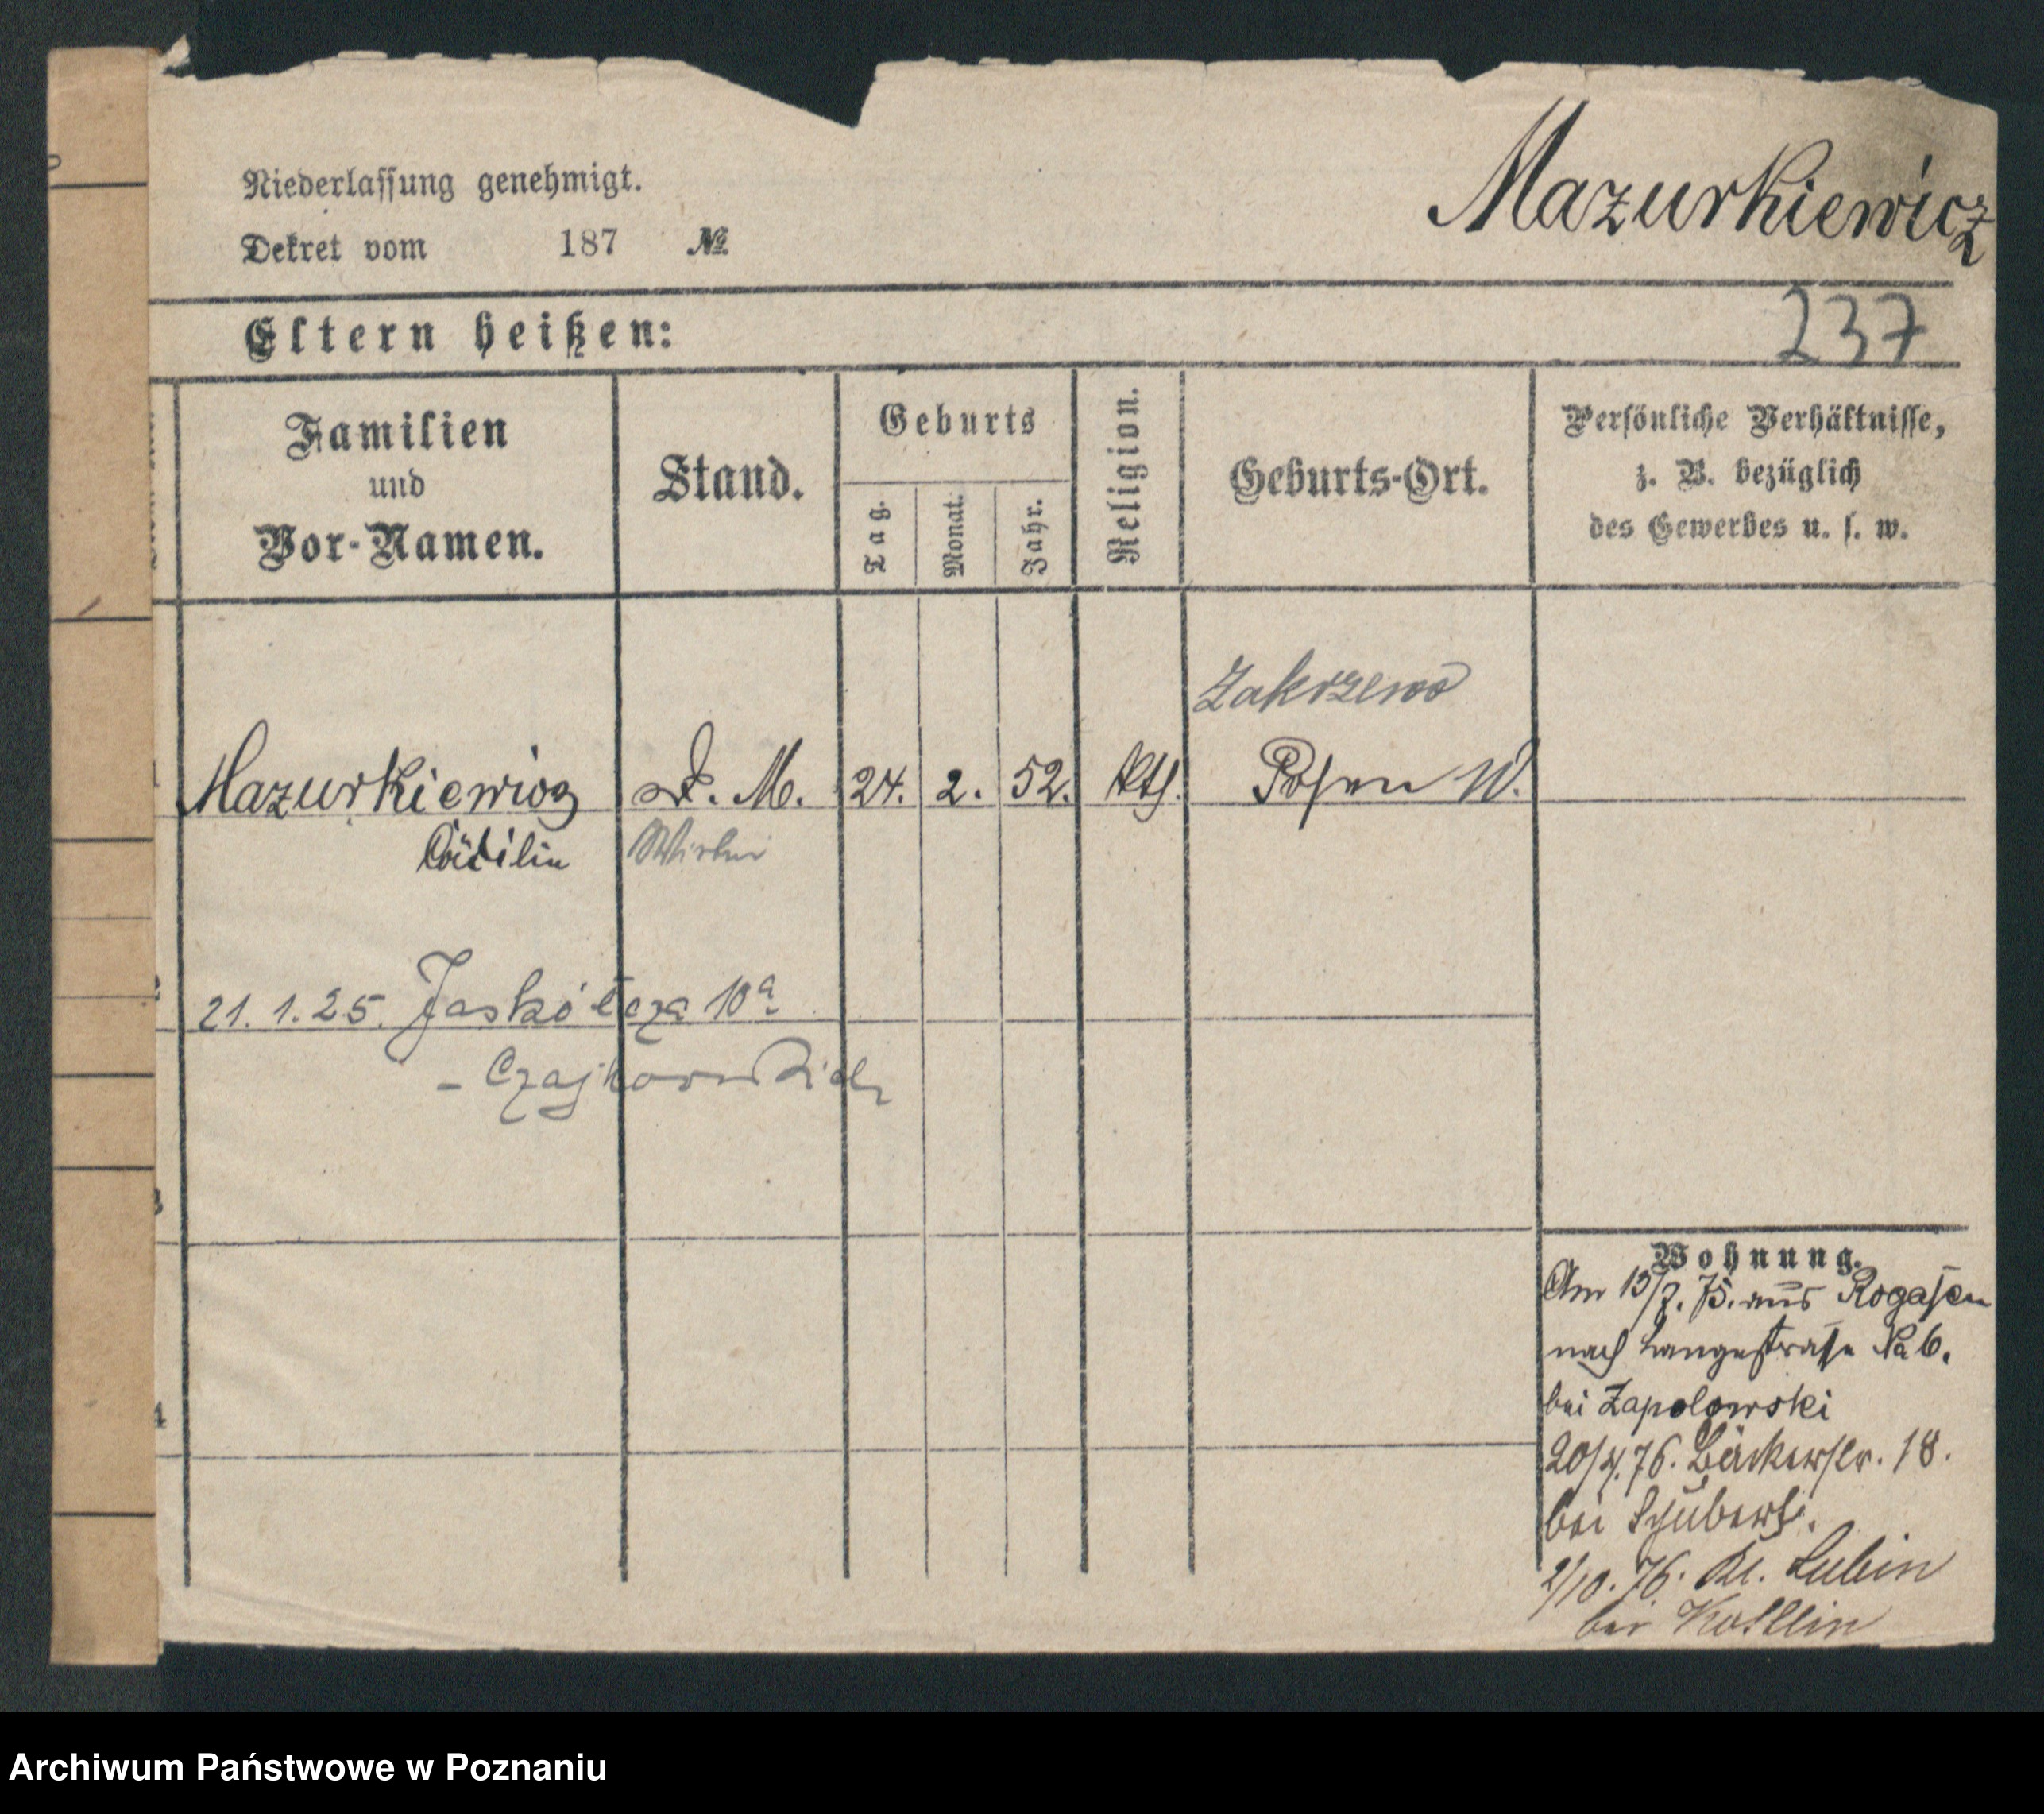 Mazurkiewicz
Niederlassung genehmigt.
Dekret vom 187 №
237
Eltern heißen:
Familien
und
Vor-Namen.
Stand.
Geburts
Tag.
Monat.
Jahr.
Religion.
Geburts-Ort.
Persönliche Verhältnisse,
z. B. bezüglich
des Gewerbes u. s. w.
Zakrzewo
Mazurkiewicz D. M. 24. 2. 52. kth. Posen W.
Cäcilie
2
21. 1. 25. Jaskółcza 10a
- Czajkowskich
3
4
Wohnung.
Am 15/7. 75. aus Rogasen
nach Langestrasse No 6.
bei Zapolowski
20/4. 76. Bäckerstr. 18.
bei Schubert.
2/10. 76. Kl. Lubin
bei
Archiwum Państwowe w Poznaniu